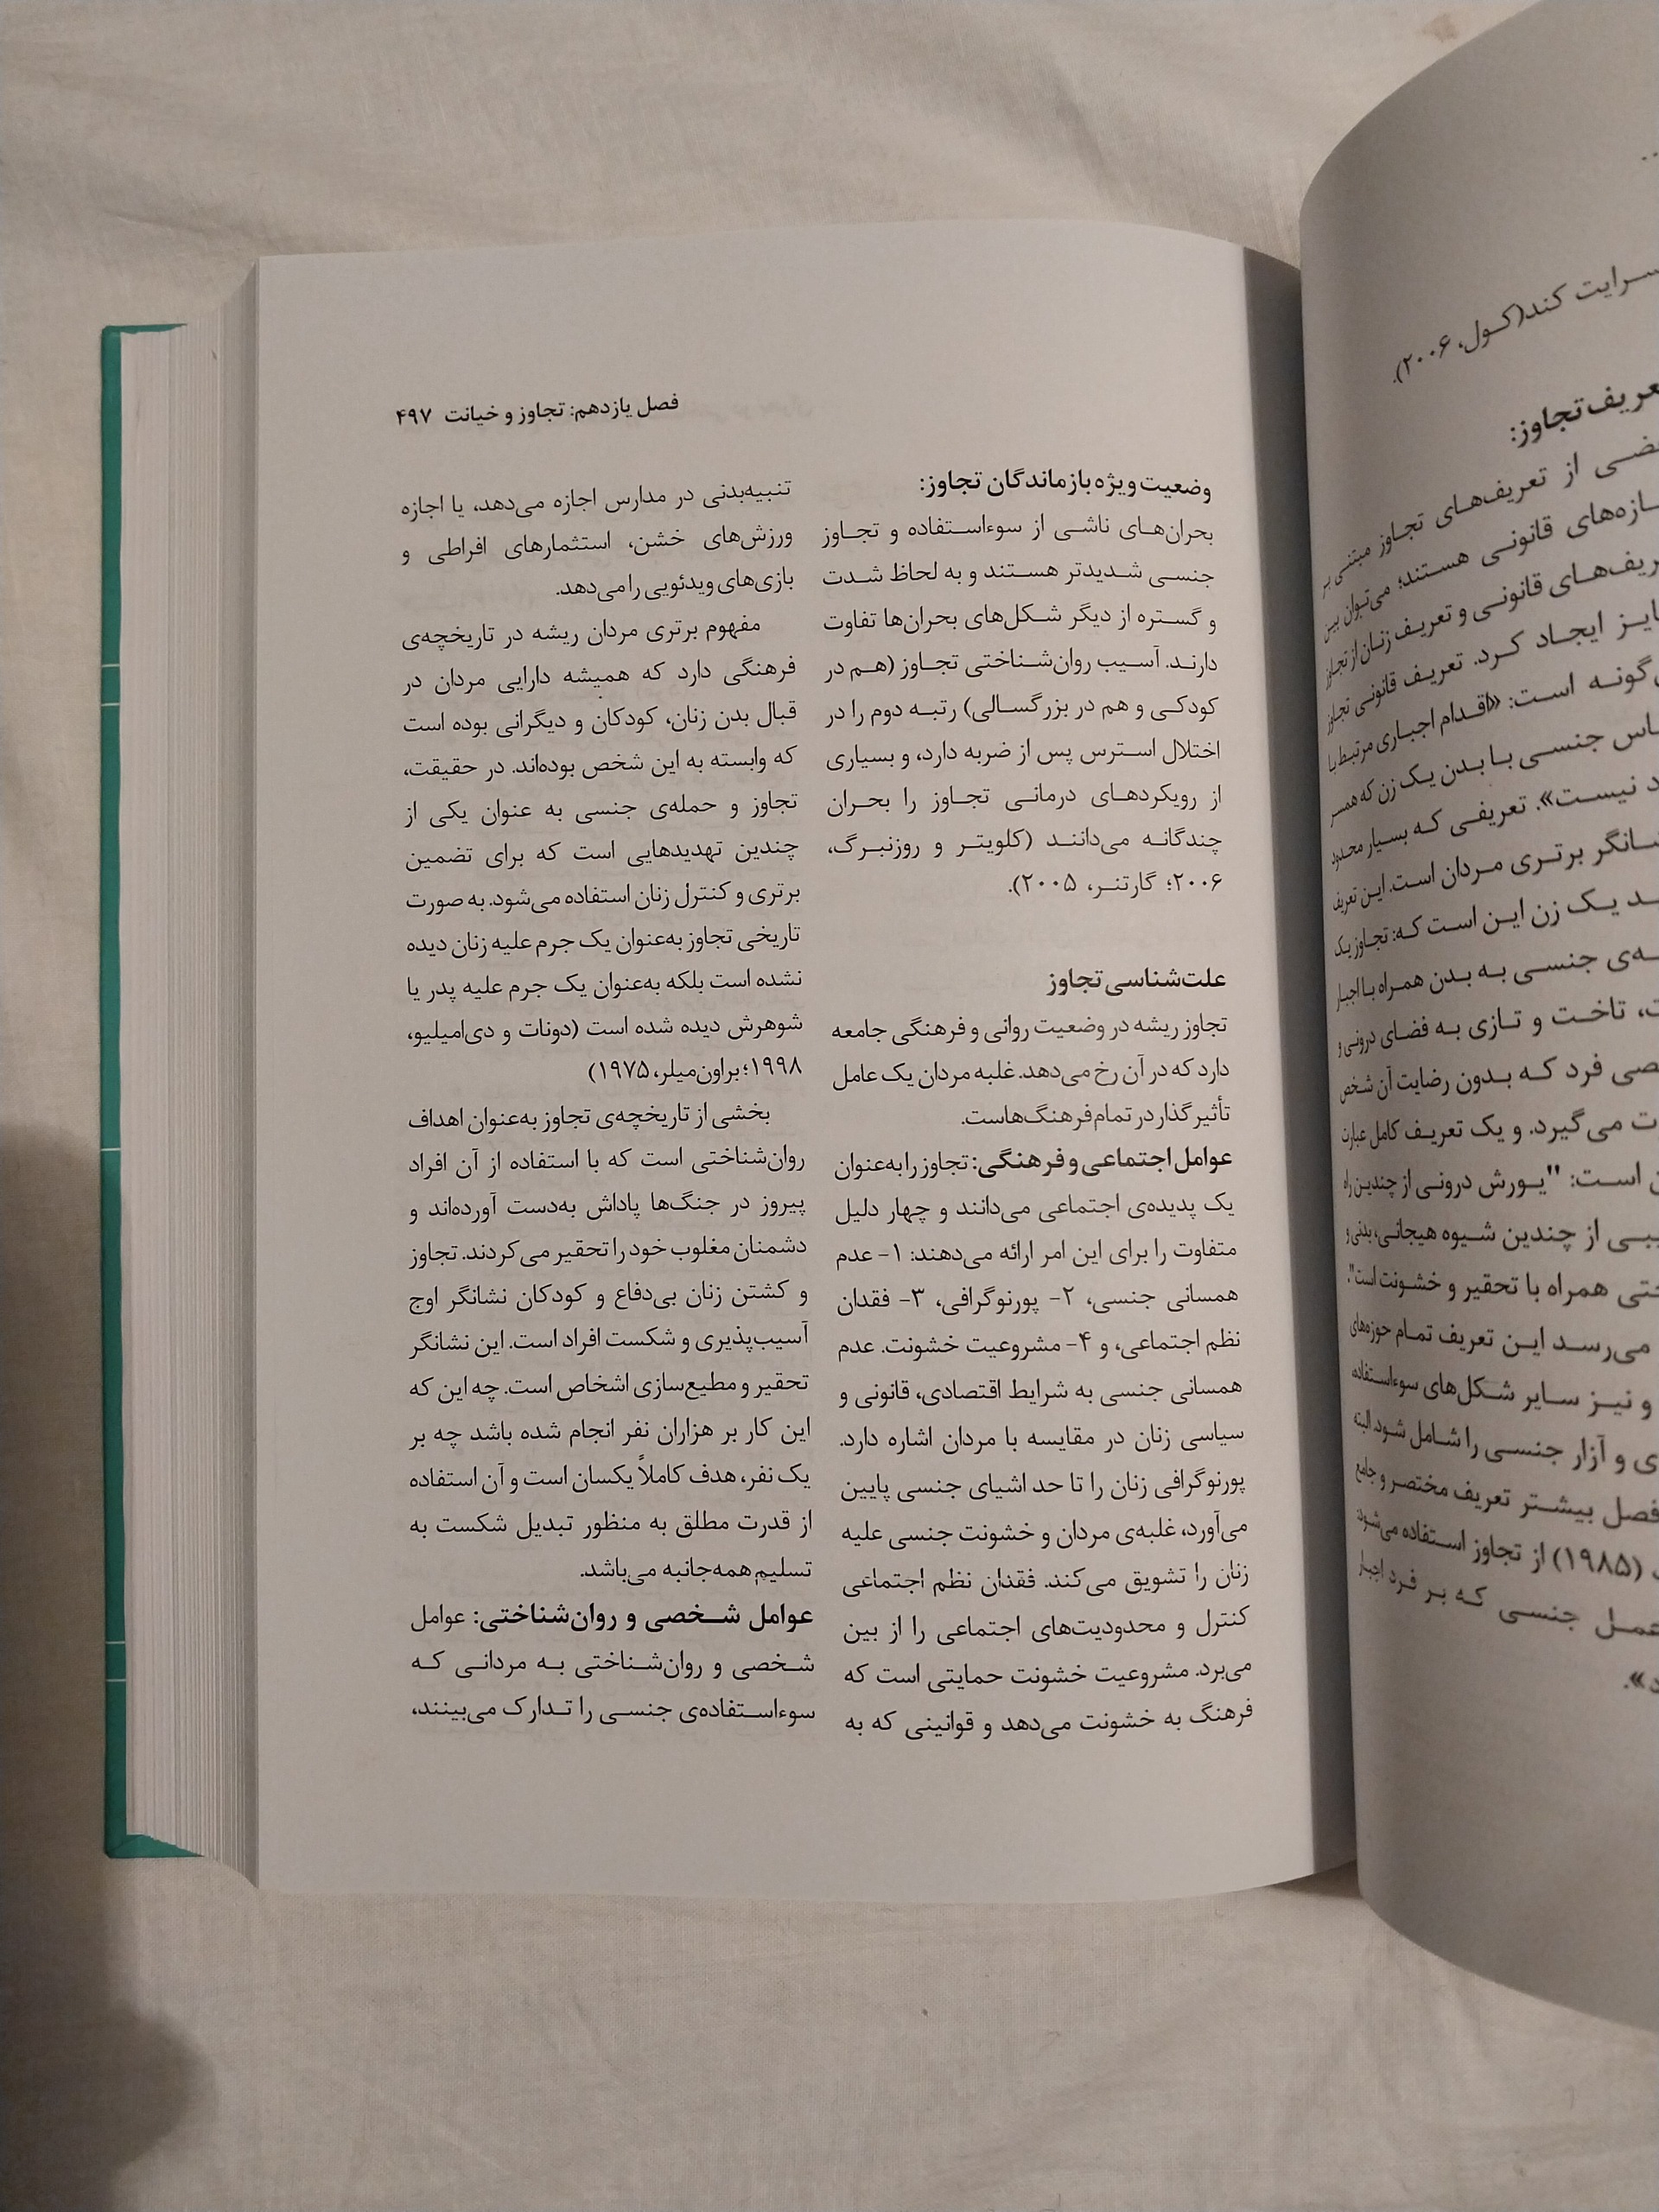 فصل یازدهم: تجاوز و خیانت ۴۹۷
وضعیت ویژه بازماندگان تجاوز:
بحران‌های ناشی از سوءاستفاده و تجاوز
جنسی شدیدتر هستند و به لحاظ شدت
و گستره از دیگر شکل‌های بحران‌ها تفاوت
دارند. آسیب روان‌شناختی تجاوز (هم در
کودکی و هم در بزرگسالی) رتبه دوم را در
اختلال استرس پس از ضربه دارد، و بسیاری
از رویکردهای درمانی تجاوز را بحران
چندگانه می‌دانند (کلویتر و روزنبرگ،
۲۰۰۶؛ گارتنر، ۲۰۰۵).
علت‌شناسی تجاوز
تجاوز ریشه در وضعیت روانی و فرهنگی جامعه
دارد که در آن رخ می‌دهد. غلبه مردان یک عامل
تأثیرگذار در تمام فرهنگ‌هاست.
عوامل اجتماعی و فرهنگی: تجاوز را به‌عنوان
یک پدیده‌ی اجتماعی می‌دانند و چهار دلیل
متفاوت را برای این امر ارائه می‌دهند: ۱- عدم
همسانی جنسی، ۲- پورنوگرافی، ۳- فقدان
نظم اجتماعی، و ۴- مشروعیت خشونت. عدم
همسانی جنسی به شرایط اقتصادی، قانونی و
سیاسی زنان در مقایسه با مردان اشاره دارد.
پورنوگرافی زنان را تا حد اشیای جنسی پایین
می‌آورد، غلبه‌ی مردان و خشونت جنسی علیه
زنان را تشویق می‌کند. فقدان نظم اجتماعی
کنترل و محدودیت‌های اجتماعی را از بین
می‌برد. مشروعیت خشونت حمایتی است که
فرهنگ به خشونت می‌دهد و قوانینی که به
تنبیه‌بدنی در مدارس اجازه می‌دهد، یا اجازه
ورزش‌های خشن، استثمارهای افراطی و
بازی‌های ویدئویی را می‌دهد.
مفهوم برتری مردان ریشه در تاریخچه‌ی
فرهنگی دارد که همیشه دارایی مردان در
قبال بدن زنان، کودکان و دیگرانی بوده است
که وابسته به این شخص بوده‌اند. در حقیقت،
تجاوز و حمله‌ی جنسی به عنوان یکی از
چندین تهدیدهایی است که برای تضمین
برتری و کنترل زنان استفاده می‌شود. به صورت
تاریخی تجاوز به‌عنوان یک جرم علیه زنان دیده
نشده است بلکه به‌عنوان یک جرم علیه پدر یا
شوهرش دیده شده است (دونات و دی‌امیلیو،
۱۹۹۸؛ براون‌میلر، ۱۹۷۵)
بخشی از تاریخچه‌ی تجاوز به‌عنوان اهداف
روان‌شناختی است که با استفاده از آن افراد
پیروز در جنگ‌ها پاداش به‌دست آورده‌اند و
دشمنان مغلوب خود را تحقیر می‌کردند. تجاوز
و کشتن زنان بی‌دفاع و کودکان نشانگر اوج
آسیب‌پذیری و شکست افراد است. این نشانگر
تحقیر و مطیع‌سازی اشخاص است. چه این که
این کار بر هزاران نفر انجام شده باشد چه بر
یک نفر، هدف کاملاً یکسان است و آن استفاده
از قدرت مطلق به منظور تبدیل شکست به
تسلیم همه‌جانبه می‌باشد.
عوامل شخصی و روان‌شناختی: عوامل
شخصی و روان‌شناختی به مردانی که
سوءاستفاده‌ی جنسی را تدارک می‌بینند،
سرایت کند(کول، ۲۰۰۶).
تجاوز:
از تعریف‌های تجاوز مبتنی بر
قانونی هستند؛ می‌توان بین
قانونی و تعریف زنان از تجاوز
ایجاد کرد. تعریف قانونی تجاوز
است: «اقدام اجباری مرتبط با
جنسی با بدن یک زن که همسر
نیست». تعریفی که بسیار محدود
برتری مردان است. این تعریف
یک زن این است که: تجاوز یک
جنسی به بدن همراه با اجبار
تاخت و تازی به فضای درونی و
فرد که بدون رضایت آن شخص
می‌گیرد. و یک تعریف کامل عبارت
است: "یورش درونی از چندین راه
از چندین شیوه هیجانی، بدنی و
همراه با تحقیر و خشونت است".
می‌رسد این تعریف تمام حوزه‌های
و نیز سایر شکل‌های سوءاستفاده،
و آزار جنسی را شامل شود. البته
فصل بیشتر تعریف مختصر و جامع
(۱۹۸۵) از تجاوز استفاده می‌شود:
عمل جنسی که بر فرد اجبار